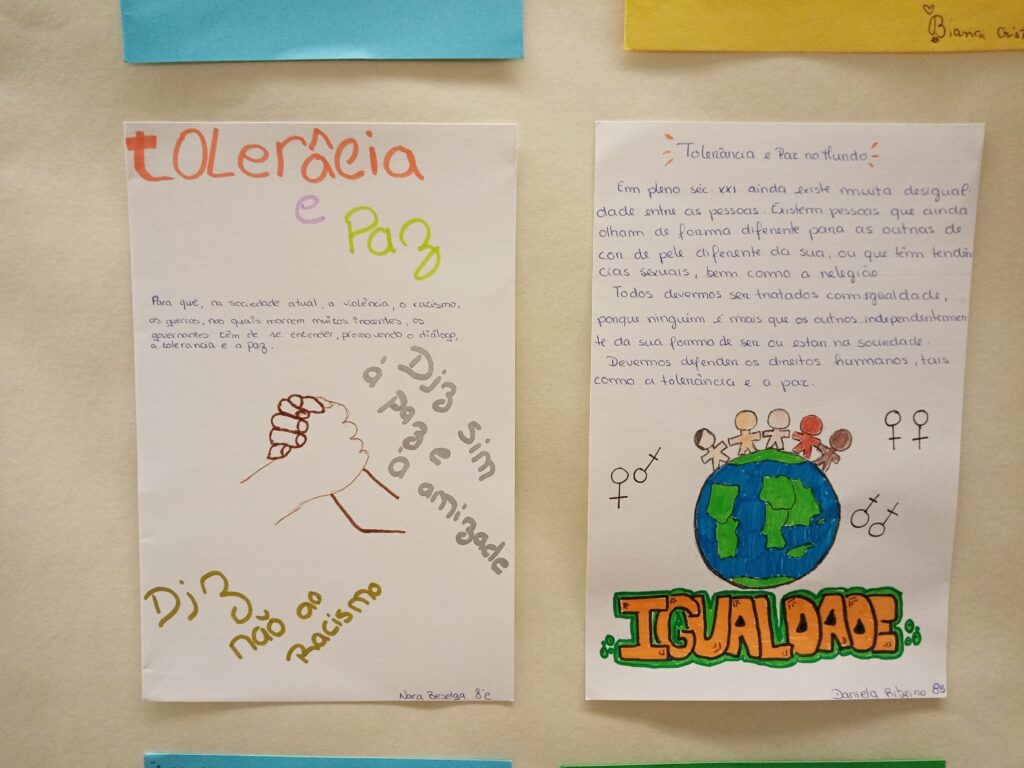 Bianca
tolerâcia
e
Paz
Para que, na sociedade atual, a violência, o racismo,
as guerras, nas quais morrem muitos inocentes, os
governantes têm de se entender, promovendo o diálogo,
a tolerancia e a paz.
Diz sim
á paz e
á amizade
Diz
não ao
Racismo
Nara Beselga 8ºC
Tolerância e Paz no Mundo
Em pleno séc XXI ainda existe muita desigual-
dade entre as pessoas. Existem pessoas que ainda
olham de forma diferente para as outras de
cor de pele diferente da sua, ou que têm tendên
cias sexuais, bem como a religião.
Todos devermos ser tratados com igualdade,
porque ninguém é mais que os outros independentemen
te da sua forma de ser ou estar na sociedade.
Devermos defender os direitos humanos, tais
como a tolerância e a paz.
IGUALDADE
Daniela Ribeiro 8B